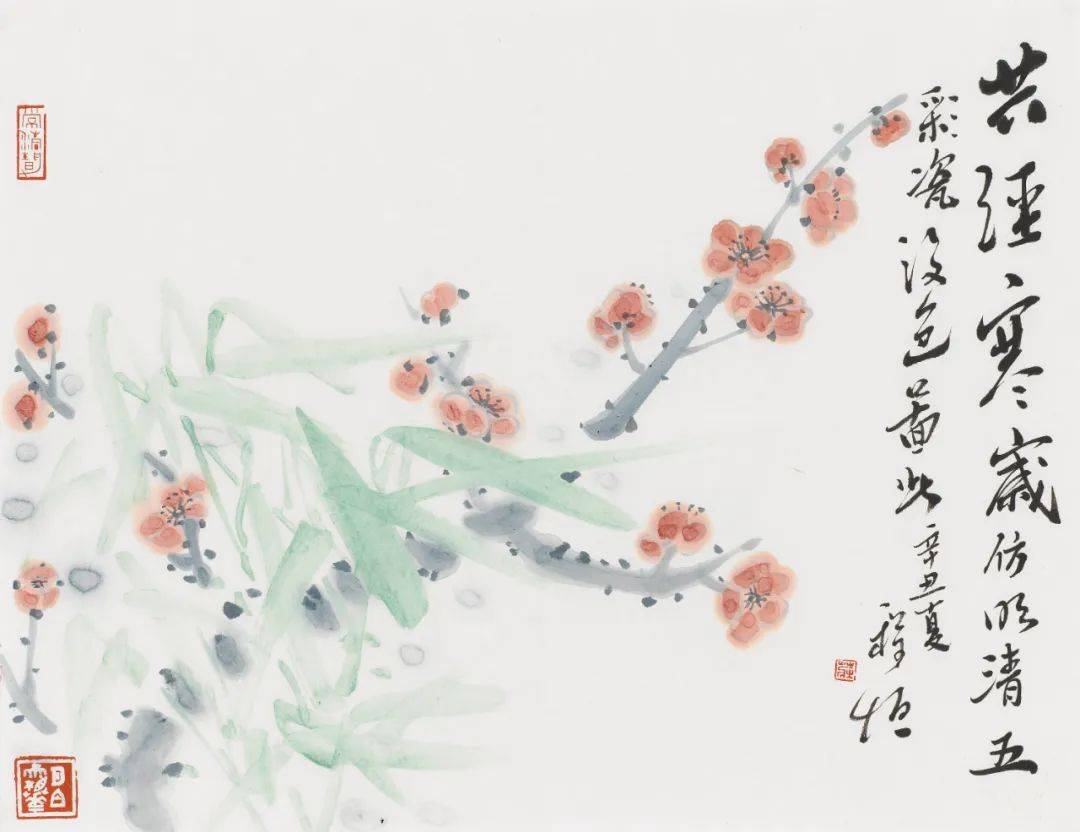 共經寒歲仿明清五
彩瓷設色畫此辛丑夏
程恒